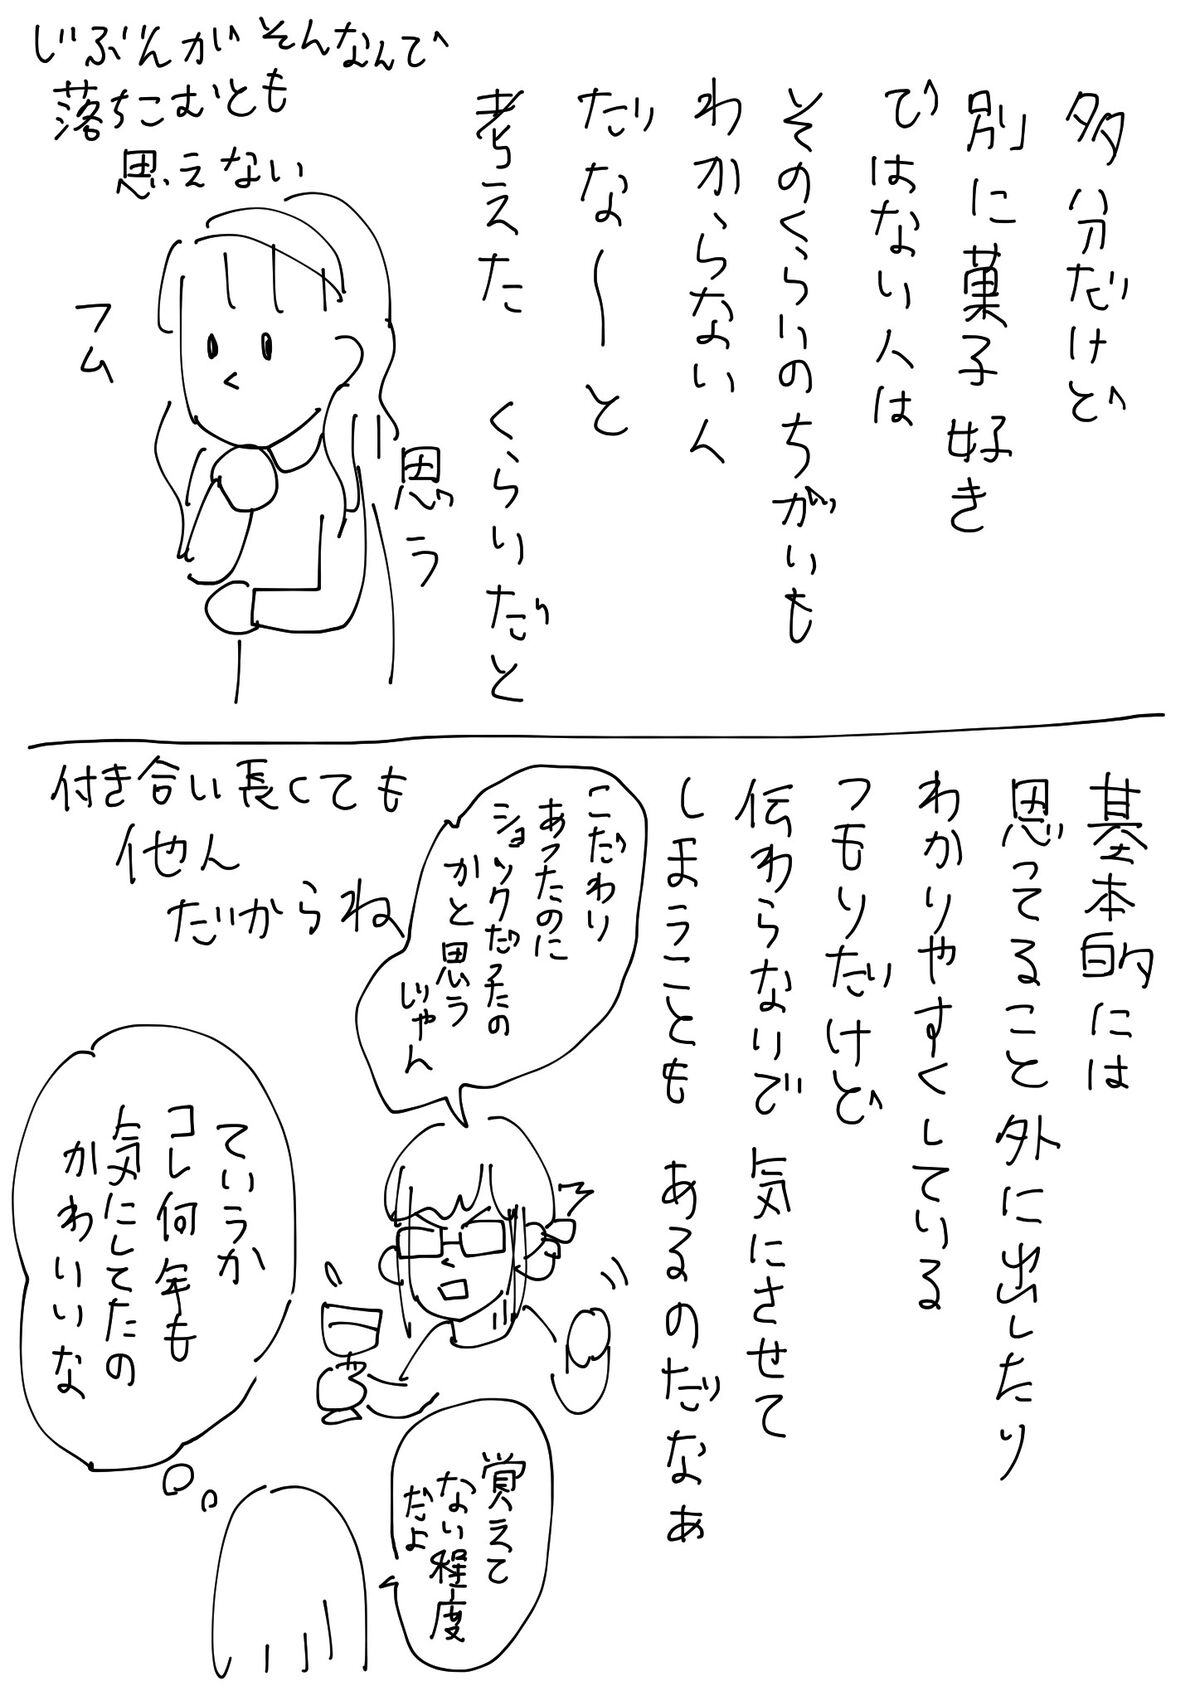 多分だけど
別に菓子好き
ではない人は
そのくらいのちがいも
わからないん
だな〜と
考えた くらいだと
思う
じぶんがそんなんで
落ちこむとも
思えない
フム
基本的には
思ってること外に出したり
わかりやすくしている
つもりだけど
伝わらないで気にさせて
しまうことも あるのだなぁ
こだわり
あったのに
ショックだったの
かと思う
じゃん
付き合い長くても
他人
だからね
覚えて
ない程度
だよ
ていうか
コレ何年も
気にしてたの
かわいいな